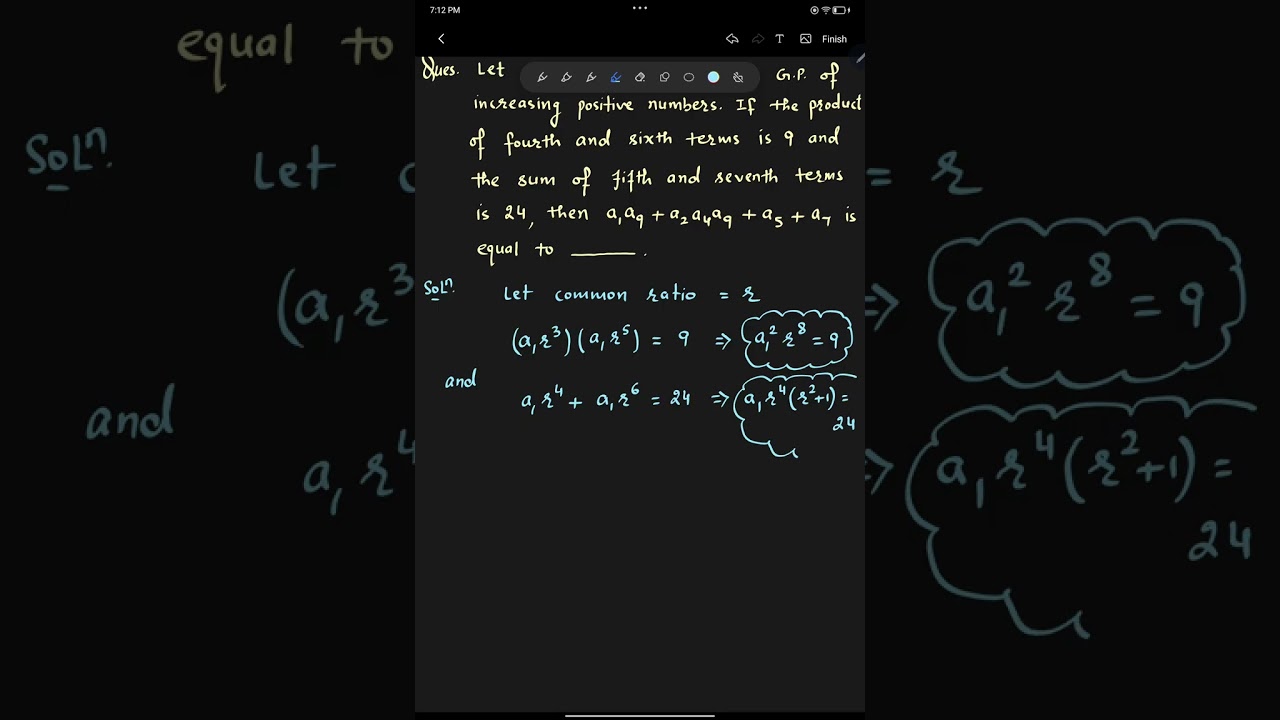 7:12 PM
Finish
Ques. Let G.P. of
increasing positive numbers. If the product
of fourth and sixth terms is 9 and
the sum of fifth and seventh terms
is 24, then a₁a₉ + a₂a₄a₉ + a₅ + a₇ is
equal to ______.
Solⁿ. Let common ratio = r
(a₁r³)(a₁r⁵) = 9 ⇒ a₁²r⁸ = 9
and
a₁r⁴ + a₁r⁶ = 24 ⇒ a₁r⁴(r²+1) =
24
equal to
Solⁿ.
Let
= r
(a₁r³
⇒ a₁²r⁸ = 9
and
a₁r⁴
⇒ a₁r⁴(r²+1) =
24